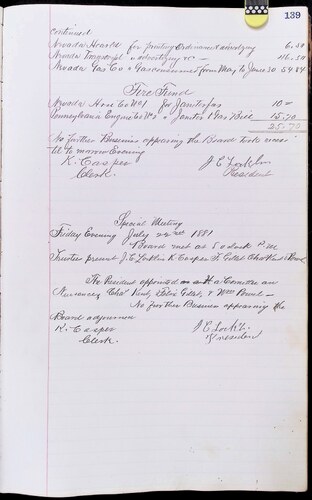 139
continued
Nevada Herald for printing Ordinance advertizing 6.50
Nevada Transcript " advertizing &c — 46.50
Nevada Gas Co " Gas consumed from May to June 30 54.84
Fire Fund
Nevada Hose Co No 1 for Janitor 10 00
Pennsylvania Engine Co No 2 " Janitor & Gas Bill 15.70
25.70
No further Business appearing the Board took recess
till to morrow Evening
K. Casper J E
Clerk. President
Special Meeting
Friday Evening July 22nd 1881
Board met at 8 o clock P.M.
Trustees present J. E. K Casper Chas Kent &
The President appointed as a Committee on
Chas Kent, & Wm Powel —
No further Business appearing the
Board adjourned
K. Casper J E
Clerk. President